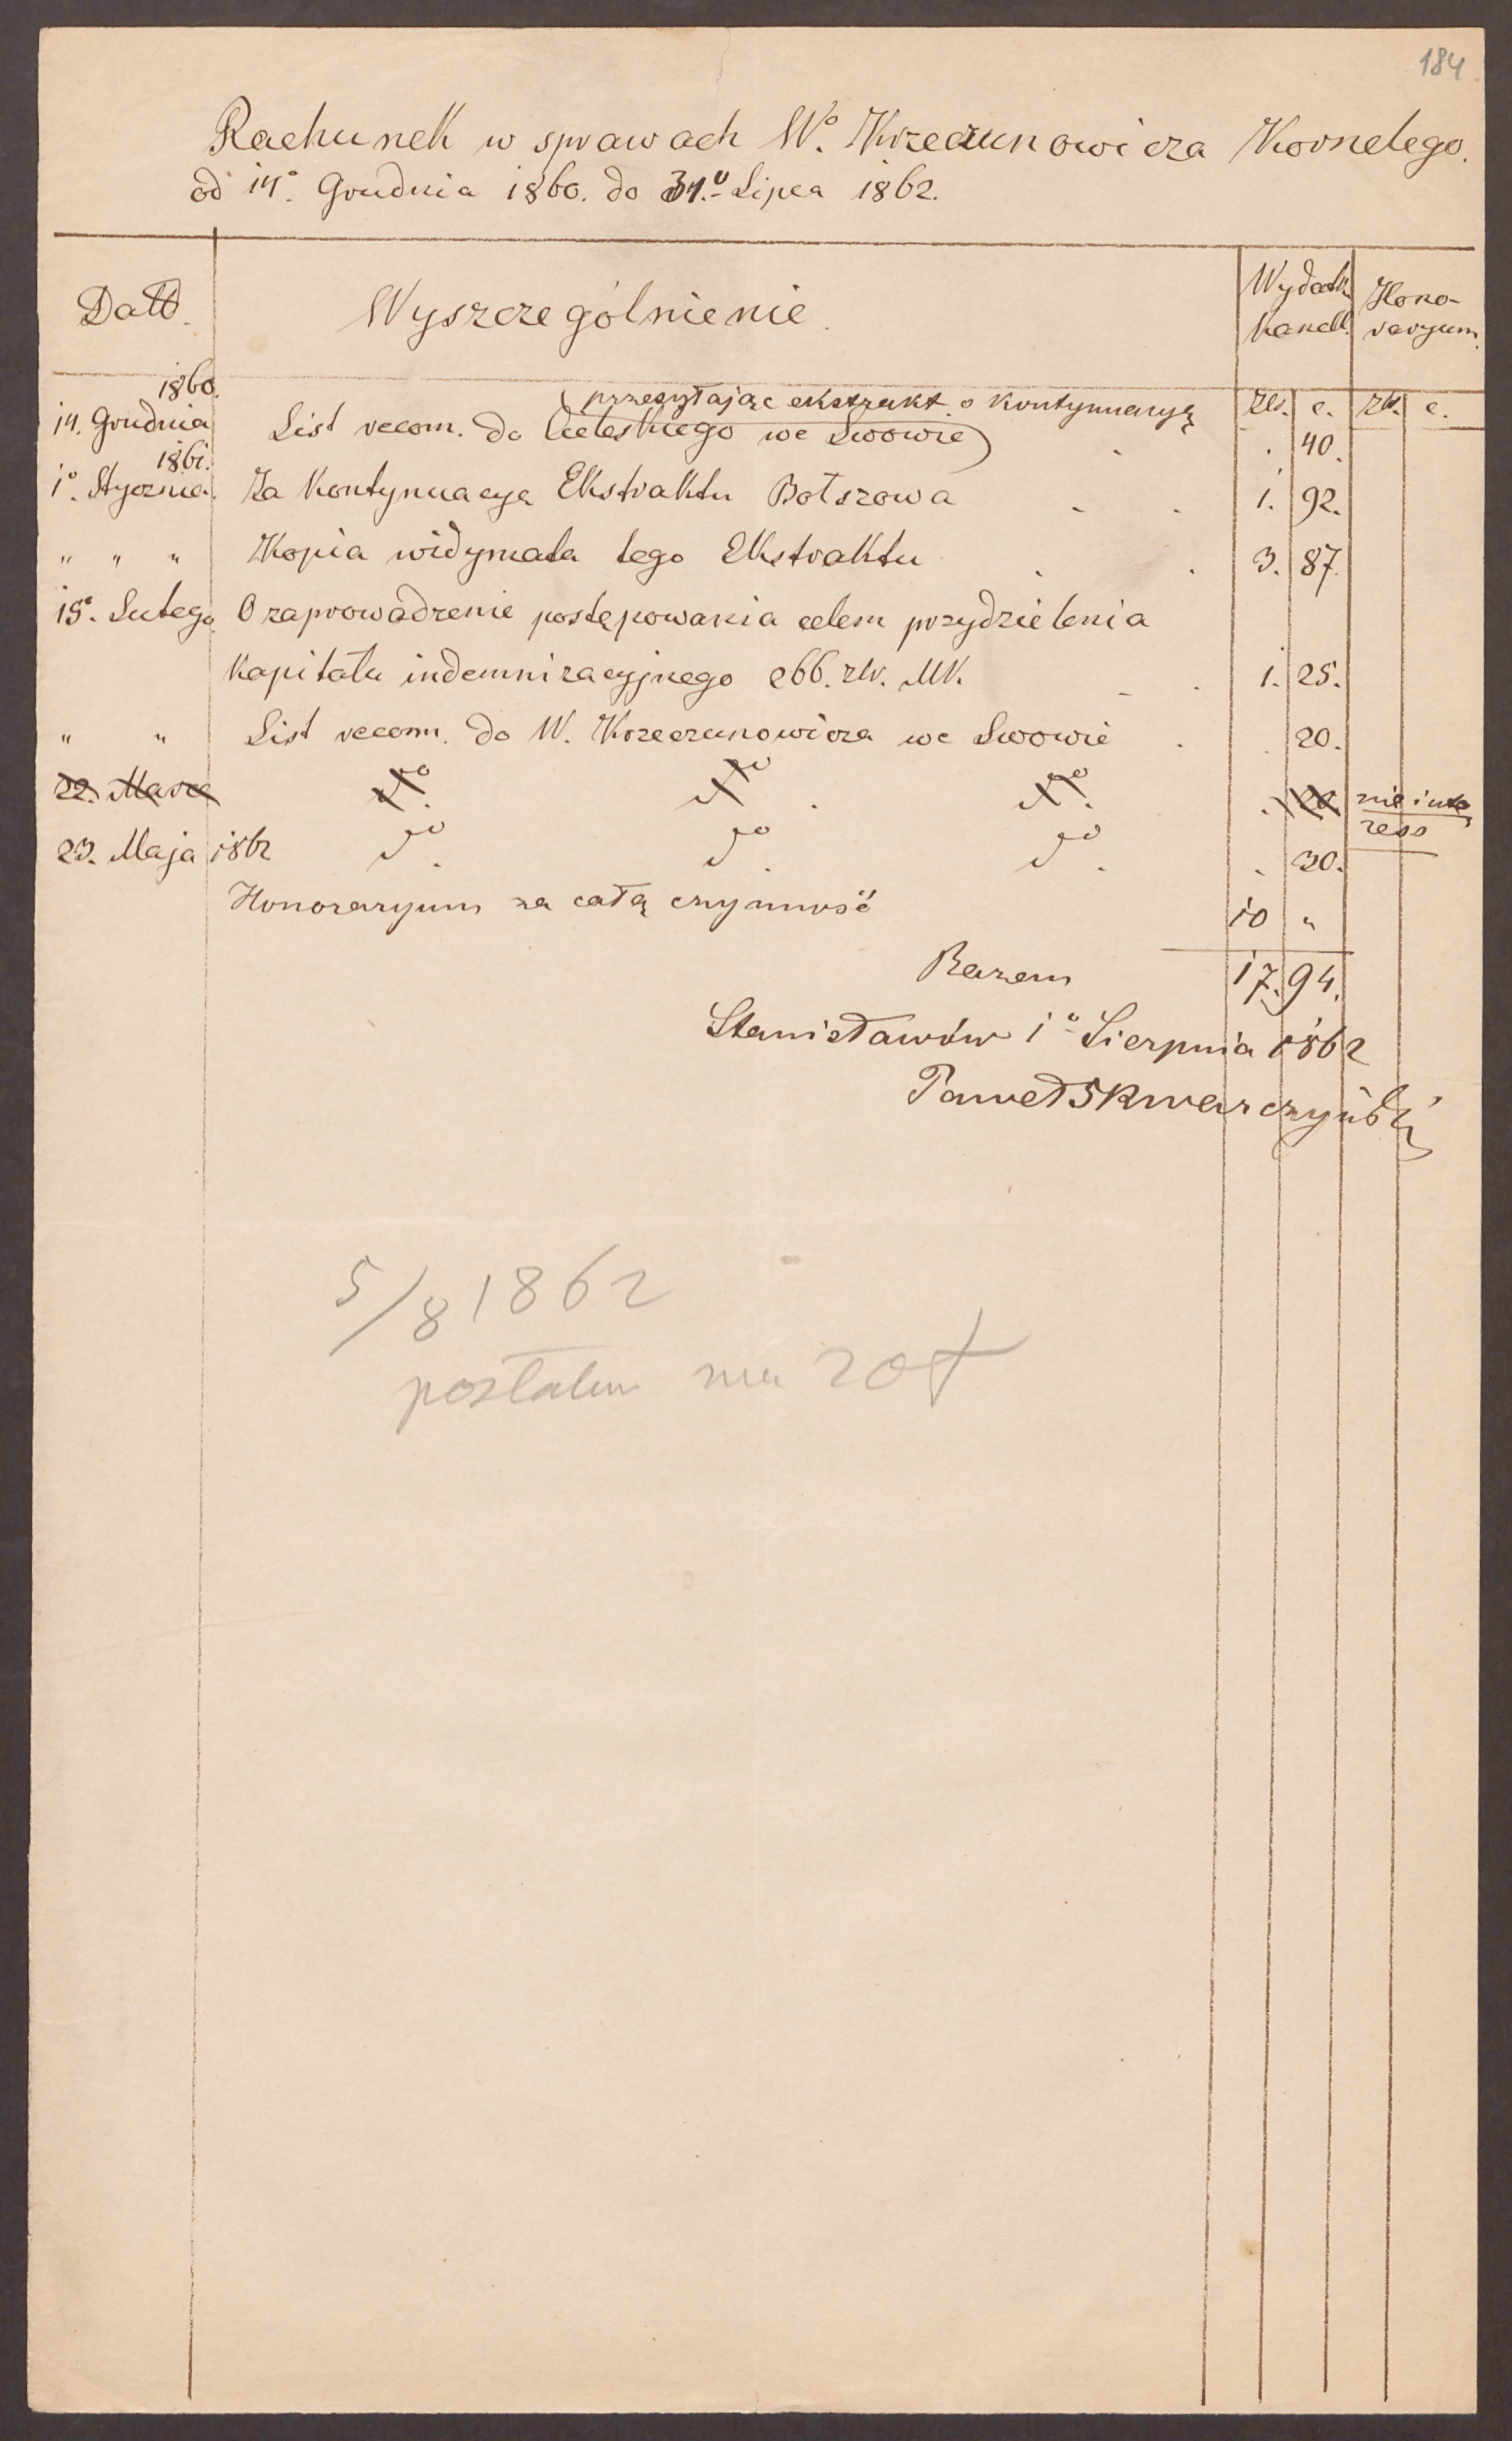 184
Rachunek w sprawach Wº. Krzeczunowicza Kornelego.
od 14º. Grudnia 1860. do 31.º Lipca 1862.
Datt. Wyszczególnienie. Wydatk. Kancell. Hono-
raryum.
1860. (przesyłając ekstrakt o kontynuacyą złr. c. złr. c.
14. Grudnia List recom. do Cieleskiego we Lwowie) . . 40.
1861.
1º. Stycznia. Za Kontynuacye Ekstraktu Bołszowa . . 1. 92.
" " " Kopia widymata tego Ekstraktu . . 3. 87.
15º. Lutego O zaprowadzenie postępowania celem przydzielenia
Kapitału indemnizacyjnego 266. złr. MK. . . 1. 25.
" " List recom. do W. Krzeczunowicza we Lwowie . . 20.
22. Marca dº. dº. dº. . 20. nie inte
ress
23. Maja 1862 dº. dº. dº. . 30.
Honoraryum za całą czynność 10 "
Razem 17. 94.
Stanisławów 1º Sierpnia 1862
Paweł Skwarczyński
5/8 1862
posłałem mu 20 f